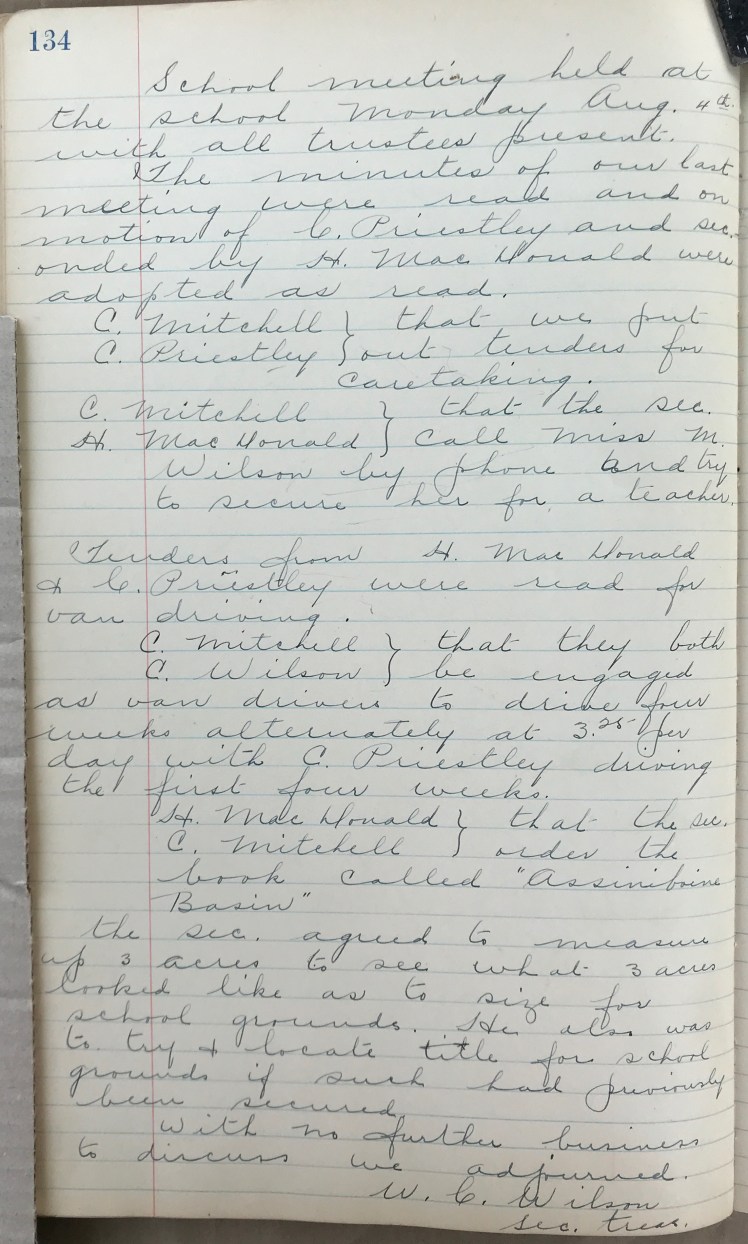 134
School meeting held at
the school Monday Aug. 4th.
with all trustees present.
The minutes of our last
meeting were read and on
motion of C. Priestley and sec-
onded by H. MacDonald were
adopted as read.
C. Mitchell } that we put
C. Priestley } out tenders for
caretaking.
C. Mitchell } that the sec.
H. MacDonald } call Miss M.
Wilson by phone and try
to secure her for a teacher.
Tenders from H. MacDonald
& C. Priestley were read for
van driving.
C. Mitchell } that they both
C. Wilson } be engaged
as van drivers to drive four
weeks alternately at 3.25 per
day with C. Priestley driving
the first four weeks.
H. MacDonald } that the sec.
C. Mitchell } order the
book called "Assiniboine
Basin"
the sec. agreed to measure
up 3 acres to see what 3 acres
looked like as to size for
school grounds. He also was
to try & locate title for school
grounds if such had previously
been secured.
With no further business
to discuss we adjourned.
W. C. Wilson
sec. treas.